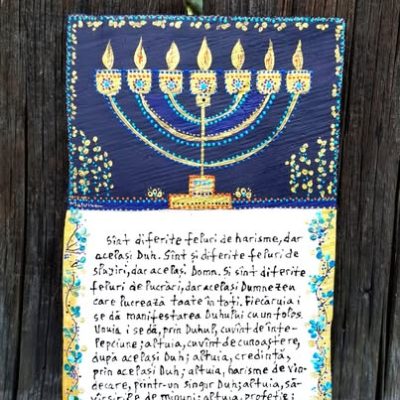 Sînt diferite feluri de harisme, dar
același Duh. Sînt și diferite feluri de
slujiri, dar același Domn. Și sînt diferite
feluri de lucrări, dar același Dumnezeu
care lucrează toate în toți. Fiecăruia i
se dă manifestarea Duhului cu un folos.
Unuia i se dă, prin Duhul, cuvînt de înțe-
lepciune; altuia, cuvînt de cunoaștere,
după același Duh; altuia, credință,
prin același Duh; altuia, harisme de vin-
decare, printr-un singur Duh; altuia, să-
vîrșirile de minuni; altuia, profeție;